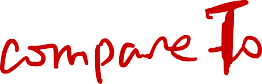 compare To